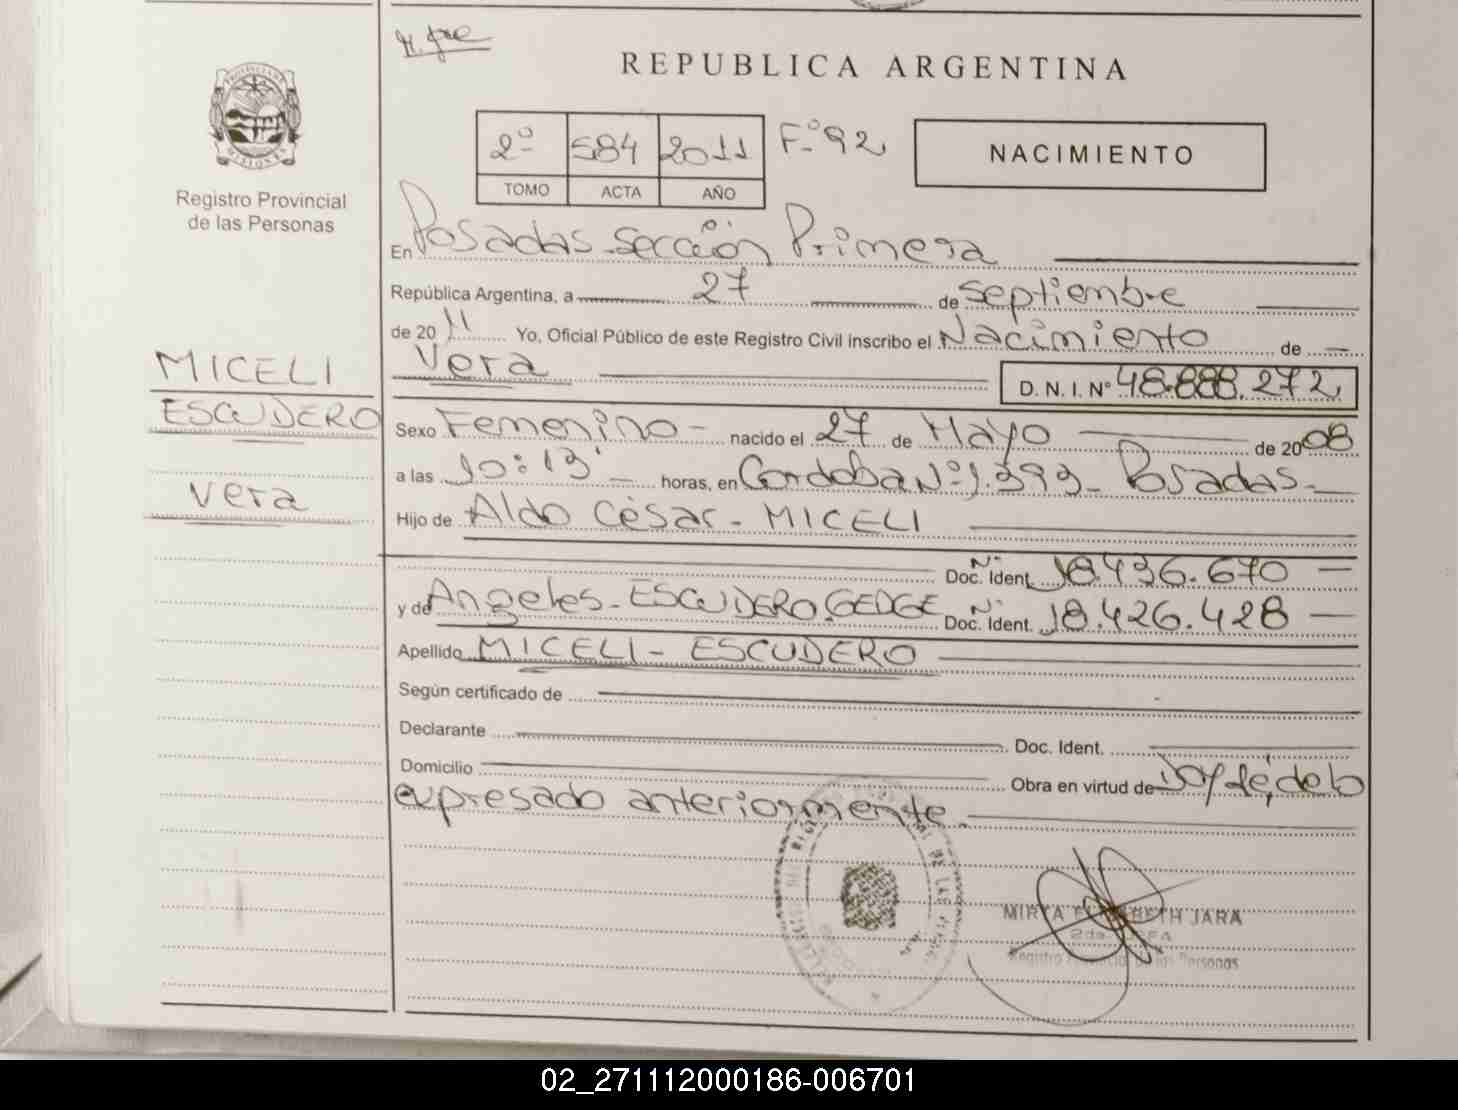 REPUBLICA ARGENTINA
2º 584 2011 Fº 92
TOMO ACTA AÑO
NACIMIENTO
PROVINCIA DE MISIONES
Registro Provincial
de las Personas
En Posadas Sección Primera
República Argentina, a 27 de Septiembre
de 2011 Yo, Oficial Público de este Registro Civil inscribo el Nacimiento de
Vera D. N. I. Nº 48.888.272
MICELI
ESCUDERO
Vera
Sexo Femenino - nacido el 27 de Mayo de 2008
a las 10:13' horas, en Cordoba Nº 1.393 - Posadas -
Hijo de Aldo César - MICELI
Doc. Ident. Nº 18.436.670
y de Angeles - ESCUDERO GEDGE Doc. Ident. Nº 18.426.428
Apellido MICELI - ESCUDERO
Según certificado de
Declarante Doc. Ident.
Domicilio Obra en virtud de
expresado anteriormente.
MIRTA ELIZABETH JARA
2da JEFA
Registro Provincial de las Personas
02_271112000186-006701